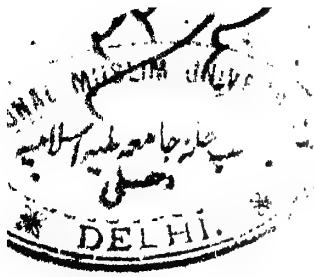 ONAL MUSLIM UNIVE
جامعہ ملیہ اسلامیہ
دھلی
DELHI.